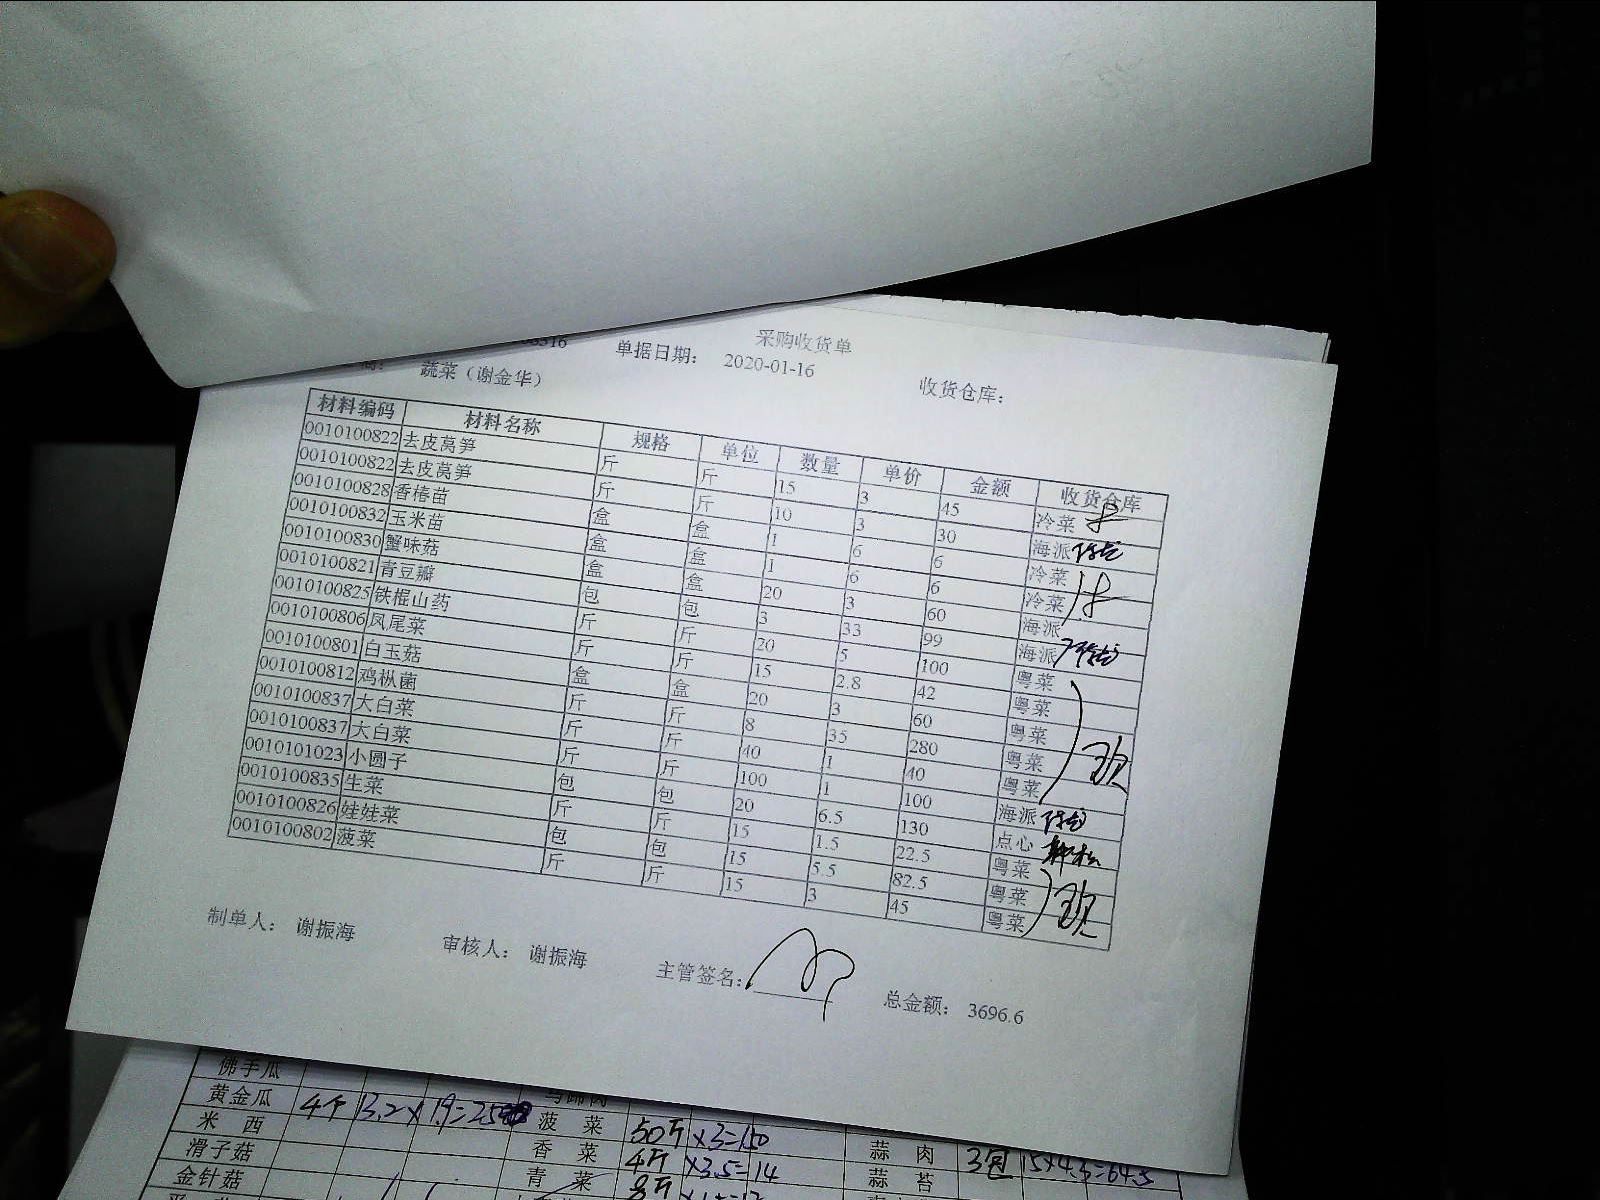 采购收货单
单据日期： 2020-01-16
蔬菜（谢金华） 收货仓库：
材料编码 材料名称 规格 单位 数量 单价 金额 收货仓库
0010100822 去皮莴笋 斤 斤 15 3 45 冷菜
0010100822 去皮莴笋 斤 斤 10 3 30 海派
0010100828 香椿苗 盒 盒 1 6 6 冷菜
0010100832 玉米苗 盒 盒 1 6 6 冷菜
0010100830 蟹味菇 盒 盒 20 3 60 海派
0010100821 青豆瓣 包 包 3 33 99 海派
0010100825 铁棍山药 斤 斤 20 5 100 粤菜
0010100806 凤尾菜 斤 斤 15 2.8 42 粤菜
0010100801 白玉菇 盒 盒 20 3 60 粤菜
0010100812 鸡枞菌 斤 斤 8 35 280 粤菜
0010100837 大白菜 斤 斤 40 1 40 粤菜
0010100837 大白菜 斤 斤 100 1 100 海派
0010101023 小圆子 包 包 20 6.5 130 点心
0010100835 生菜 斤 斤 15 1.5 22.5 粤菜
0010100826 娃娃菜 包 包 15 5.5 82.5 粤菜
0010100802 菠菜 斤 斤 15 3 45 粤菜
制单人： 谢振海 审核人： 谢振海 主管签名： 总金额： 3696.6
佛手瓜
黄金瓜 4个 13.2×1.9= 菠菜 50斤×3=150 蒜肉 3包 15×4.3=64.5
米西 香菜 4斤×3.5=14 蒜苔
滑子菇 青菜 8斤
金针菇